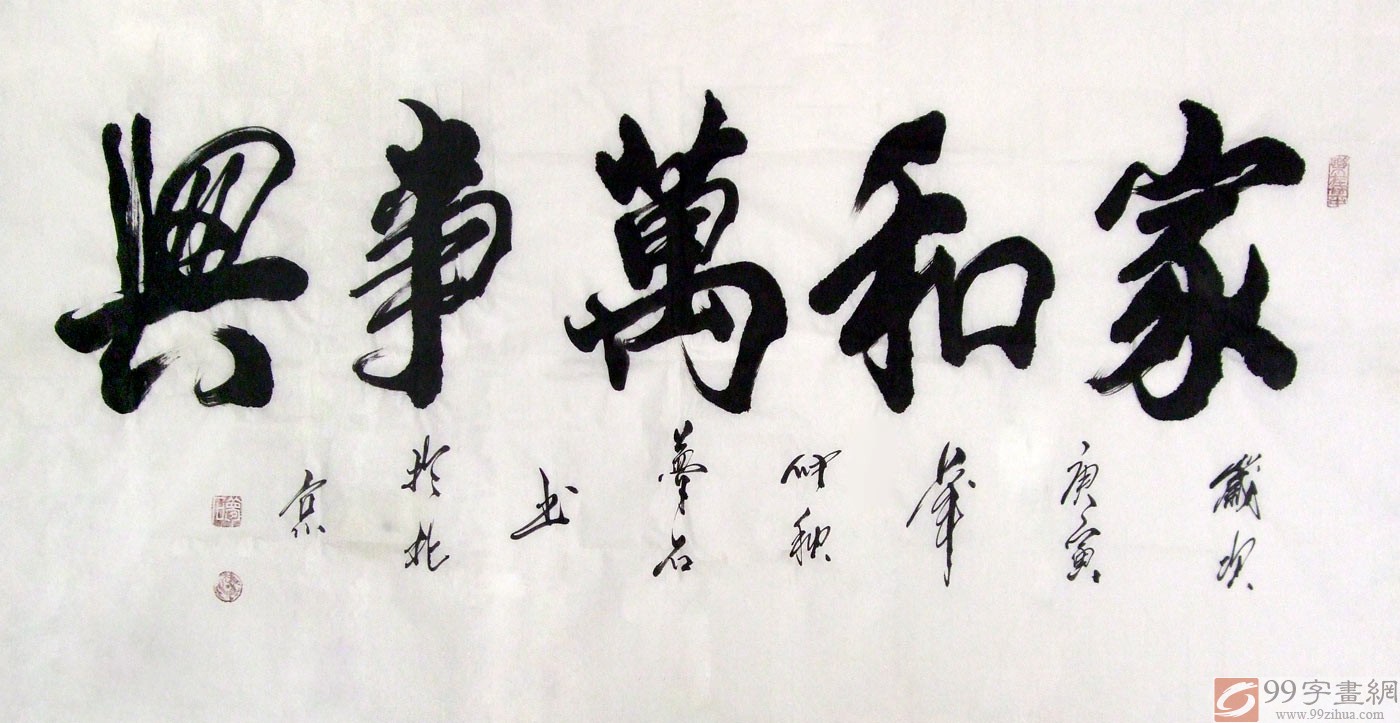 家和萬事興
歲次庚寅年仲秋夢石書於北京
99字畫網
www.99zihua.com